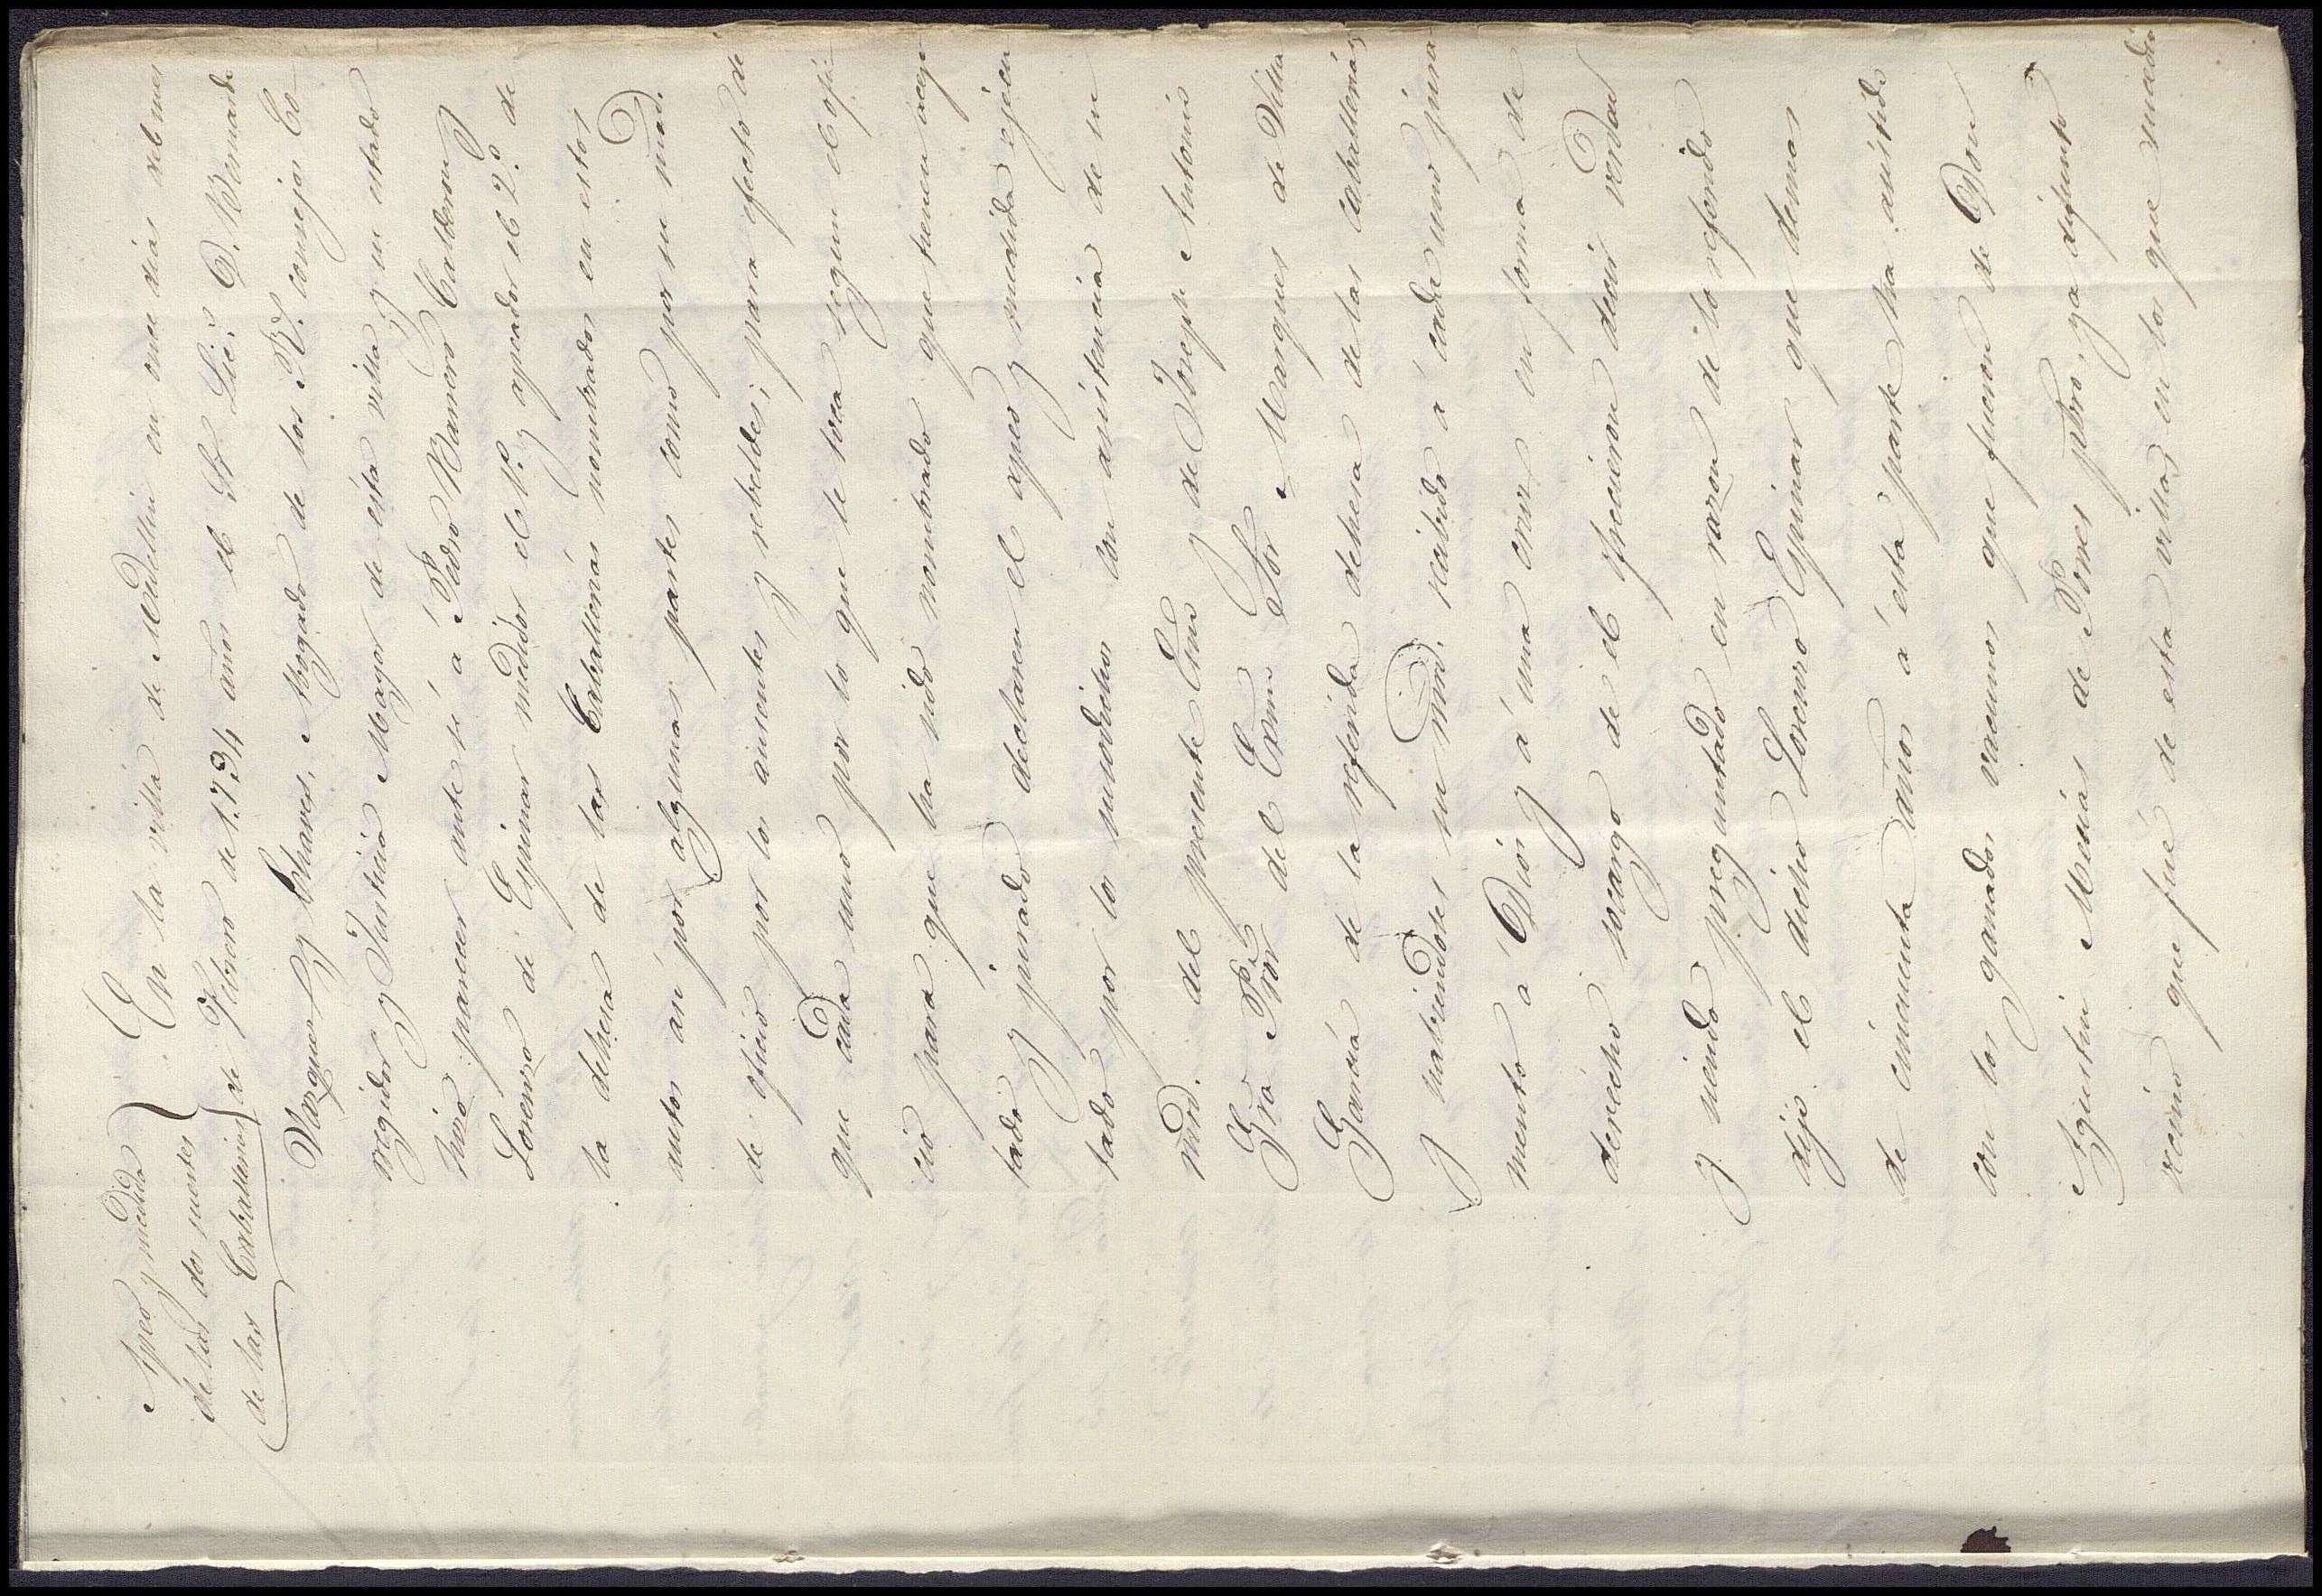 Apeo y medida
de las dos suertes
de las Caballerias
En la villa de Medellin en once dias del mes
de Febrero de 1.734 años el Sr. Lic.do D. Bernardo
Vazquez y Chaves, Abogado de los R.s consejos Co
rregidor y Justicia Mayor de esta villa y su estado
hizo parecer ante si á Pedro Ramero Calderon y
Lorenzo de Espinar medidor el 1.º y apeador el 2.º de
la dehesa de las Caballerias nombrados en estos
autos asi por algunas partes como por su mrd.
de oficio por los ausentes y rebeldes; para efecto de
que cada uno por lo que le toca segun el ofi
cio para que ha sido nombrado que tienen acep
tado y jurado declaren el apeo y medida ejecu
tado por lo susodichos con asistencia de su
mrd. del presente Esno y de Josep Antonio
Gra Pror del Exmo Sor Marques de Villa
Garcia de la referida dehesa de las caballerias
y habiendoles su mrd. recibido á cada uno jura
mento á Dios y á una cruz en forma de
derecho socargo de el ofrecieron decir verdad
y siendo preguntado en razon de lo referido
dijo el dicho Lorenzo Espinar que demas
de cincuenta años á esta parte ha asistido
con los ganados vacunos que fueron de Don
Agustin Mecias de Porres pbro, ya difunto
vecino que fué de esta villa en los que medio